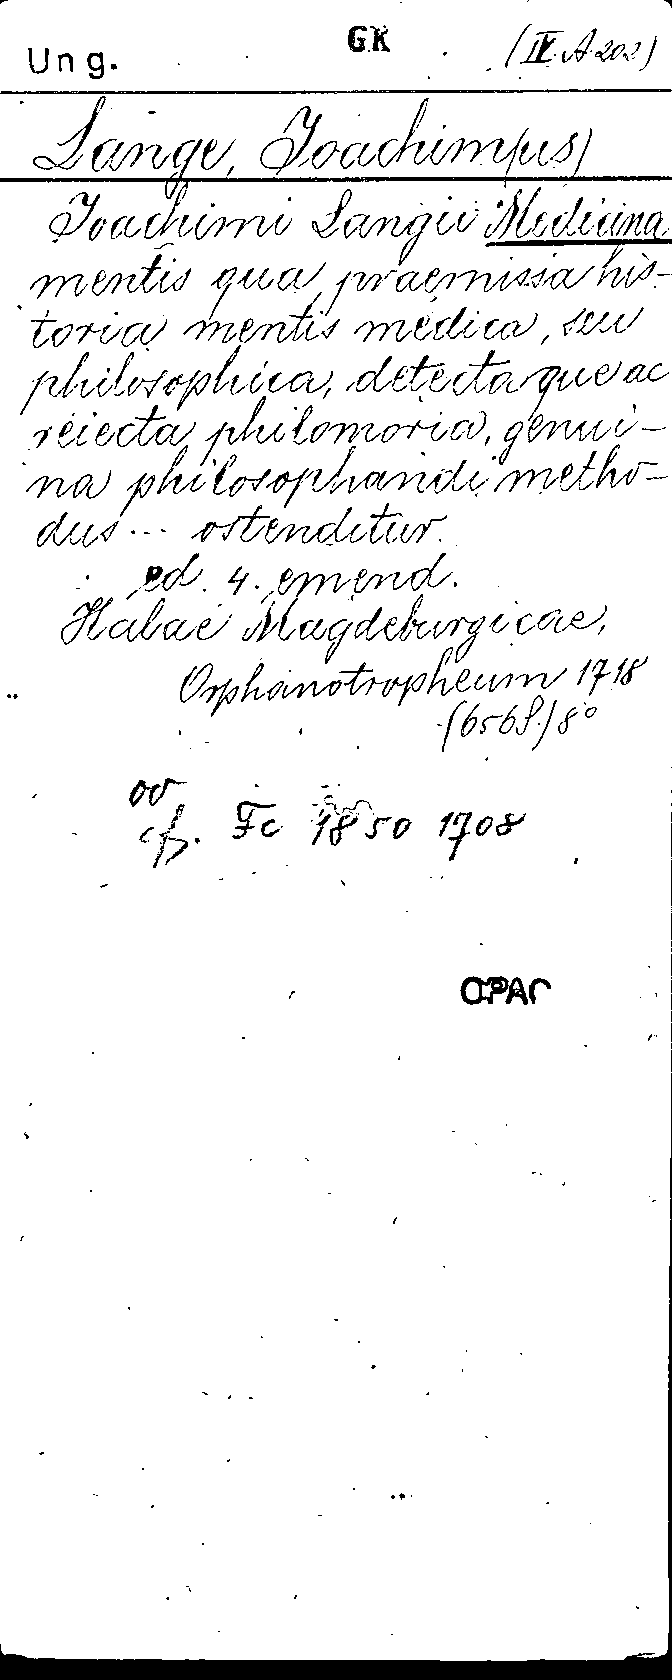 GK
Ung.
(IV. A. 202)
Lange, Joachim(us)
Joachimi Langii Medicina
mentis qua praemissa his-
toria mentis medica, seu
philosophica, detectaque ac
reiecta philomoria, genui-
na philosophandi metho-
dus... ostenditur.
ed. 4. emend.
Halae Magdeburgicae,
Orphanotropheum 1718
(656 S.) 8°
cf. Fc 1850 1708
OPAC